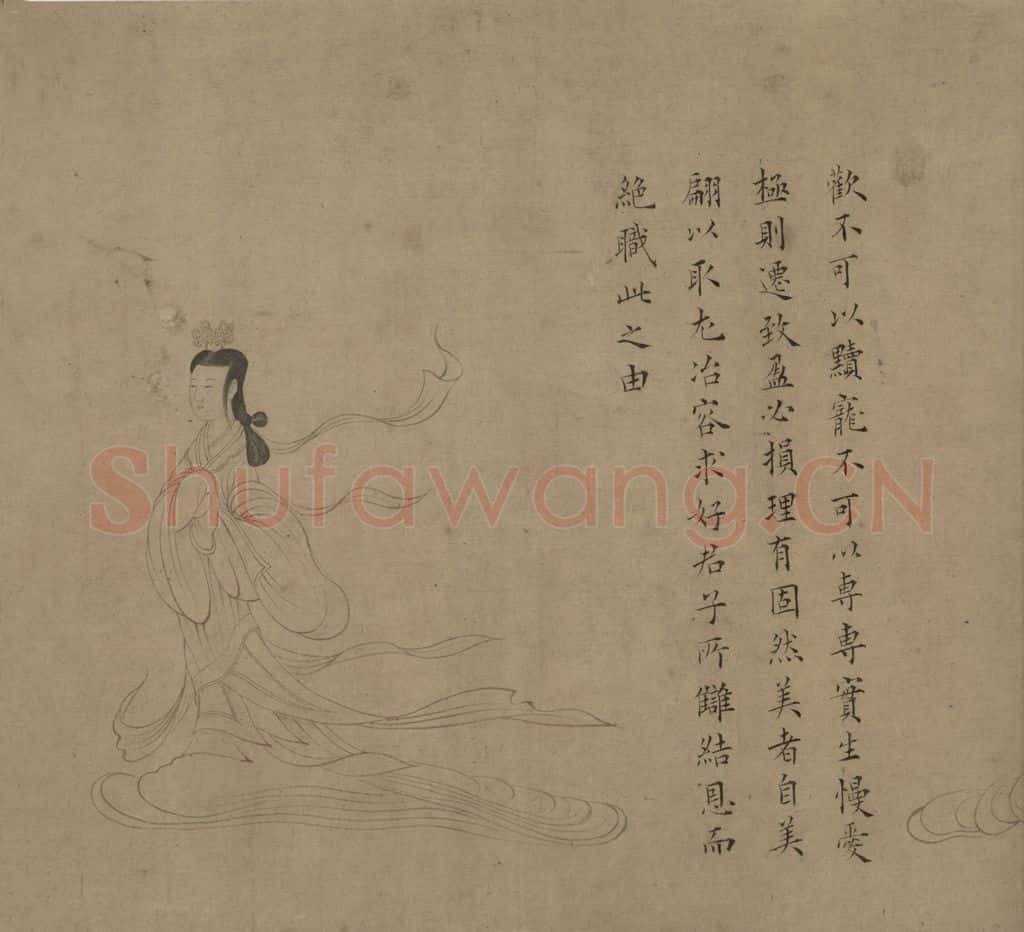 歡不可以黷寵不可以専専實生慢愛
極則遷致盈必損理有固然美者自美
翩以取尤冶容求好君子所讎結恩而
絶職此之由
Shufawang.CN